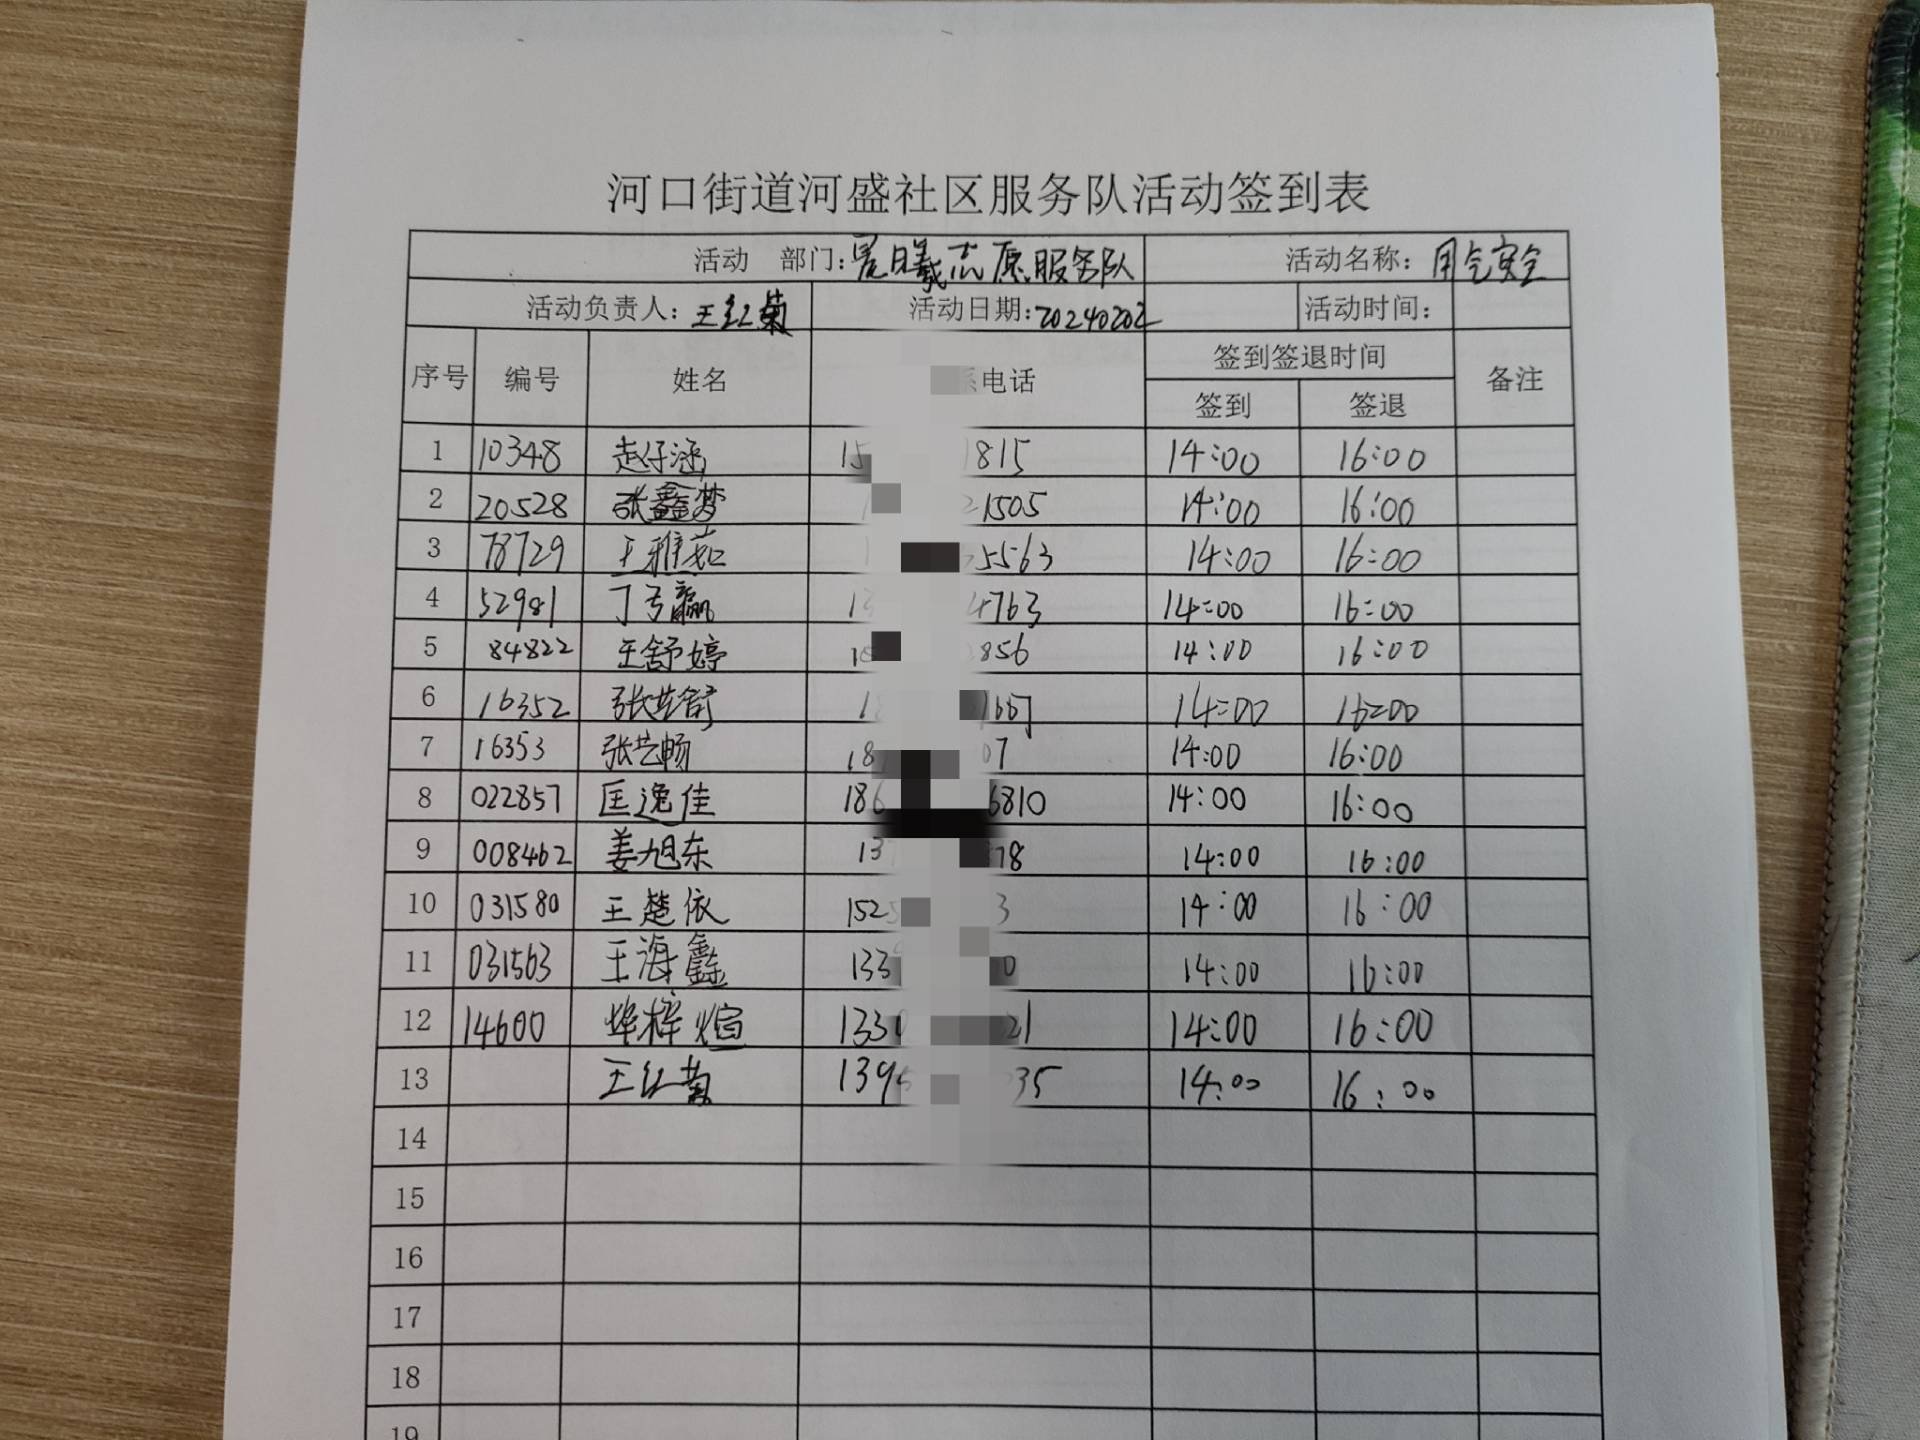 河口街道河盛社区服务队活动签到表
活动 部门：晨曦志愿服务队 活动名称：用气安全
活动负责人：王红菊 活动日期：20240202 活动时间：
序号 编号 姓名 电话 签到签退时间 备注
签到 签退
1 10348 赵仔涵 15 1815 14:00 16:00
2 20528 张鑫梦 1 21505 14:00 16:00
3 78729 王雅茹 1 5563 14:00 16:00
4 52981 丁 赢 13 4763 14:00 16:00
5 84822 王舒婷 856 14:00 16:00
6 16352 张艺馨 1 14:00 16:00
7 16353 张艺畅 18 07 14:00 16:00
8 022857 匡逸佳 186 6810 14:00 16:00
9 008462 姜旭东 13 78 14:00 16:00
10 031580 王楚依 152 3 14:00 16:00
11 031563 王海鑫 133 0 14:00 16:00
12 14600 梓煊 1330 21 14:00 16:00
13 王红菊 139 35 14:00 16:00
14
15
16
17
18
19